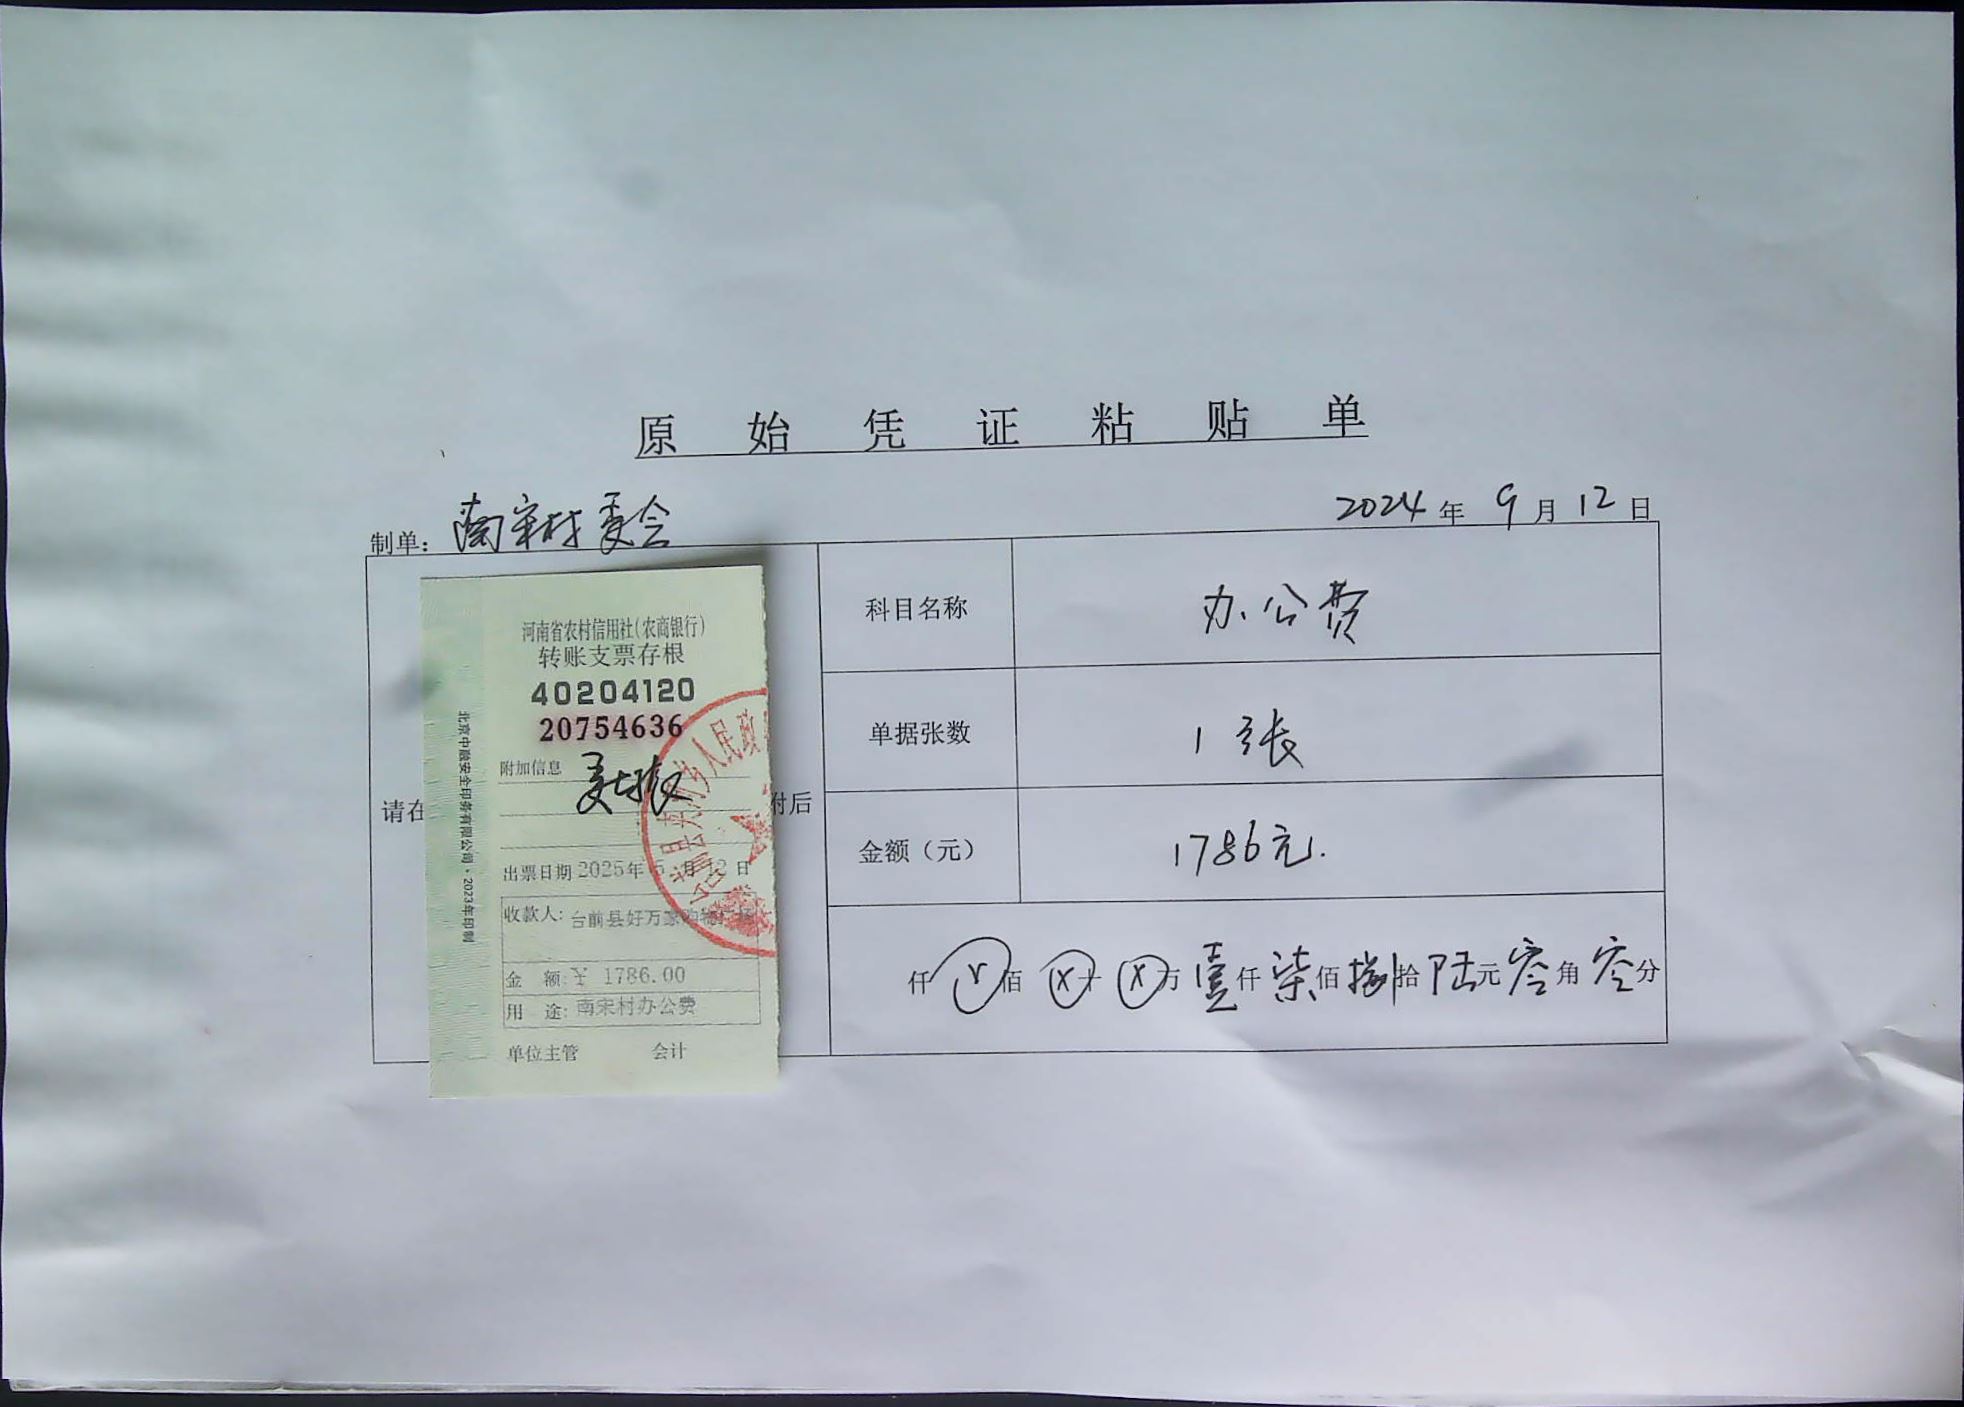 原始凭证粘贴单
制单：南宋村委会
2024年9月12日
请在
附后
科目名称
办公费
单据张数
1张
金额（元）
1786元.
仟佰十万壹仟柒佰捌拾陆元零角零分
河南省农村信用社（农商银行）
转账支票存根
40204120
20754636
附加信息
出票日期2025年5月12日
收款人：台前县好万家购物广场
金额：¥1786.00
用途：南宋村办公费
单位主管 会计
北京中融安全印务有限公司·2023年印制
人民政